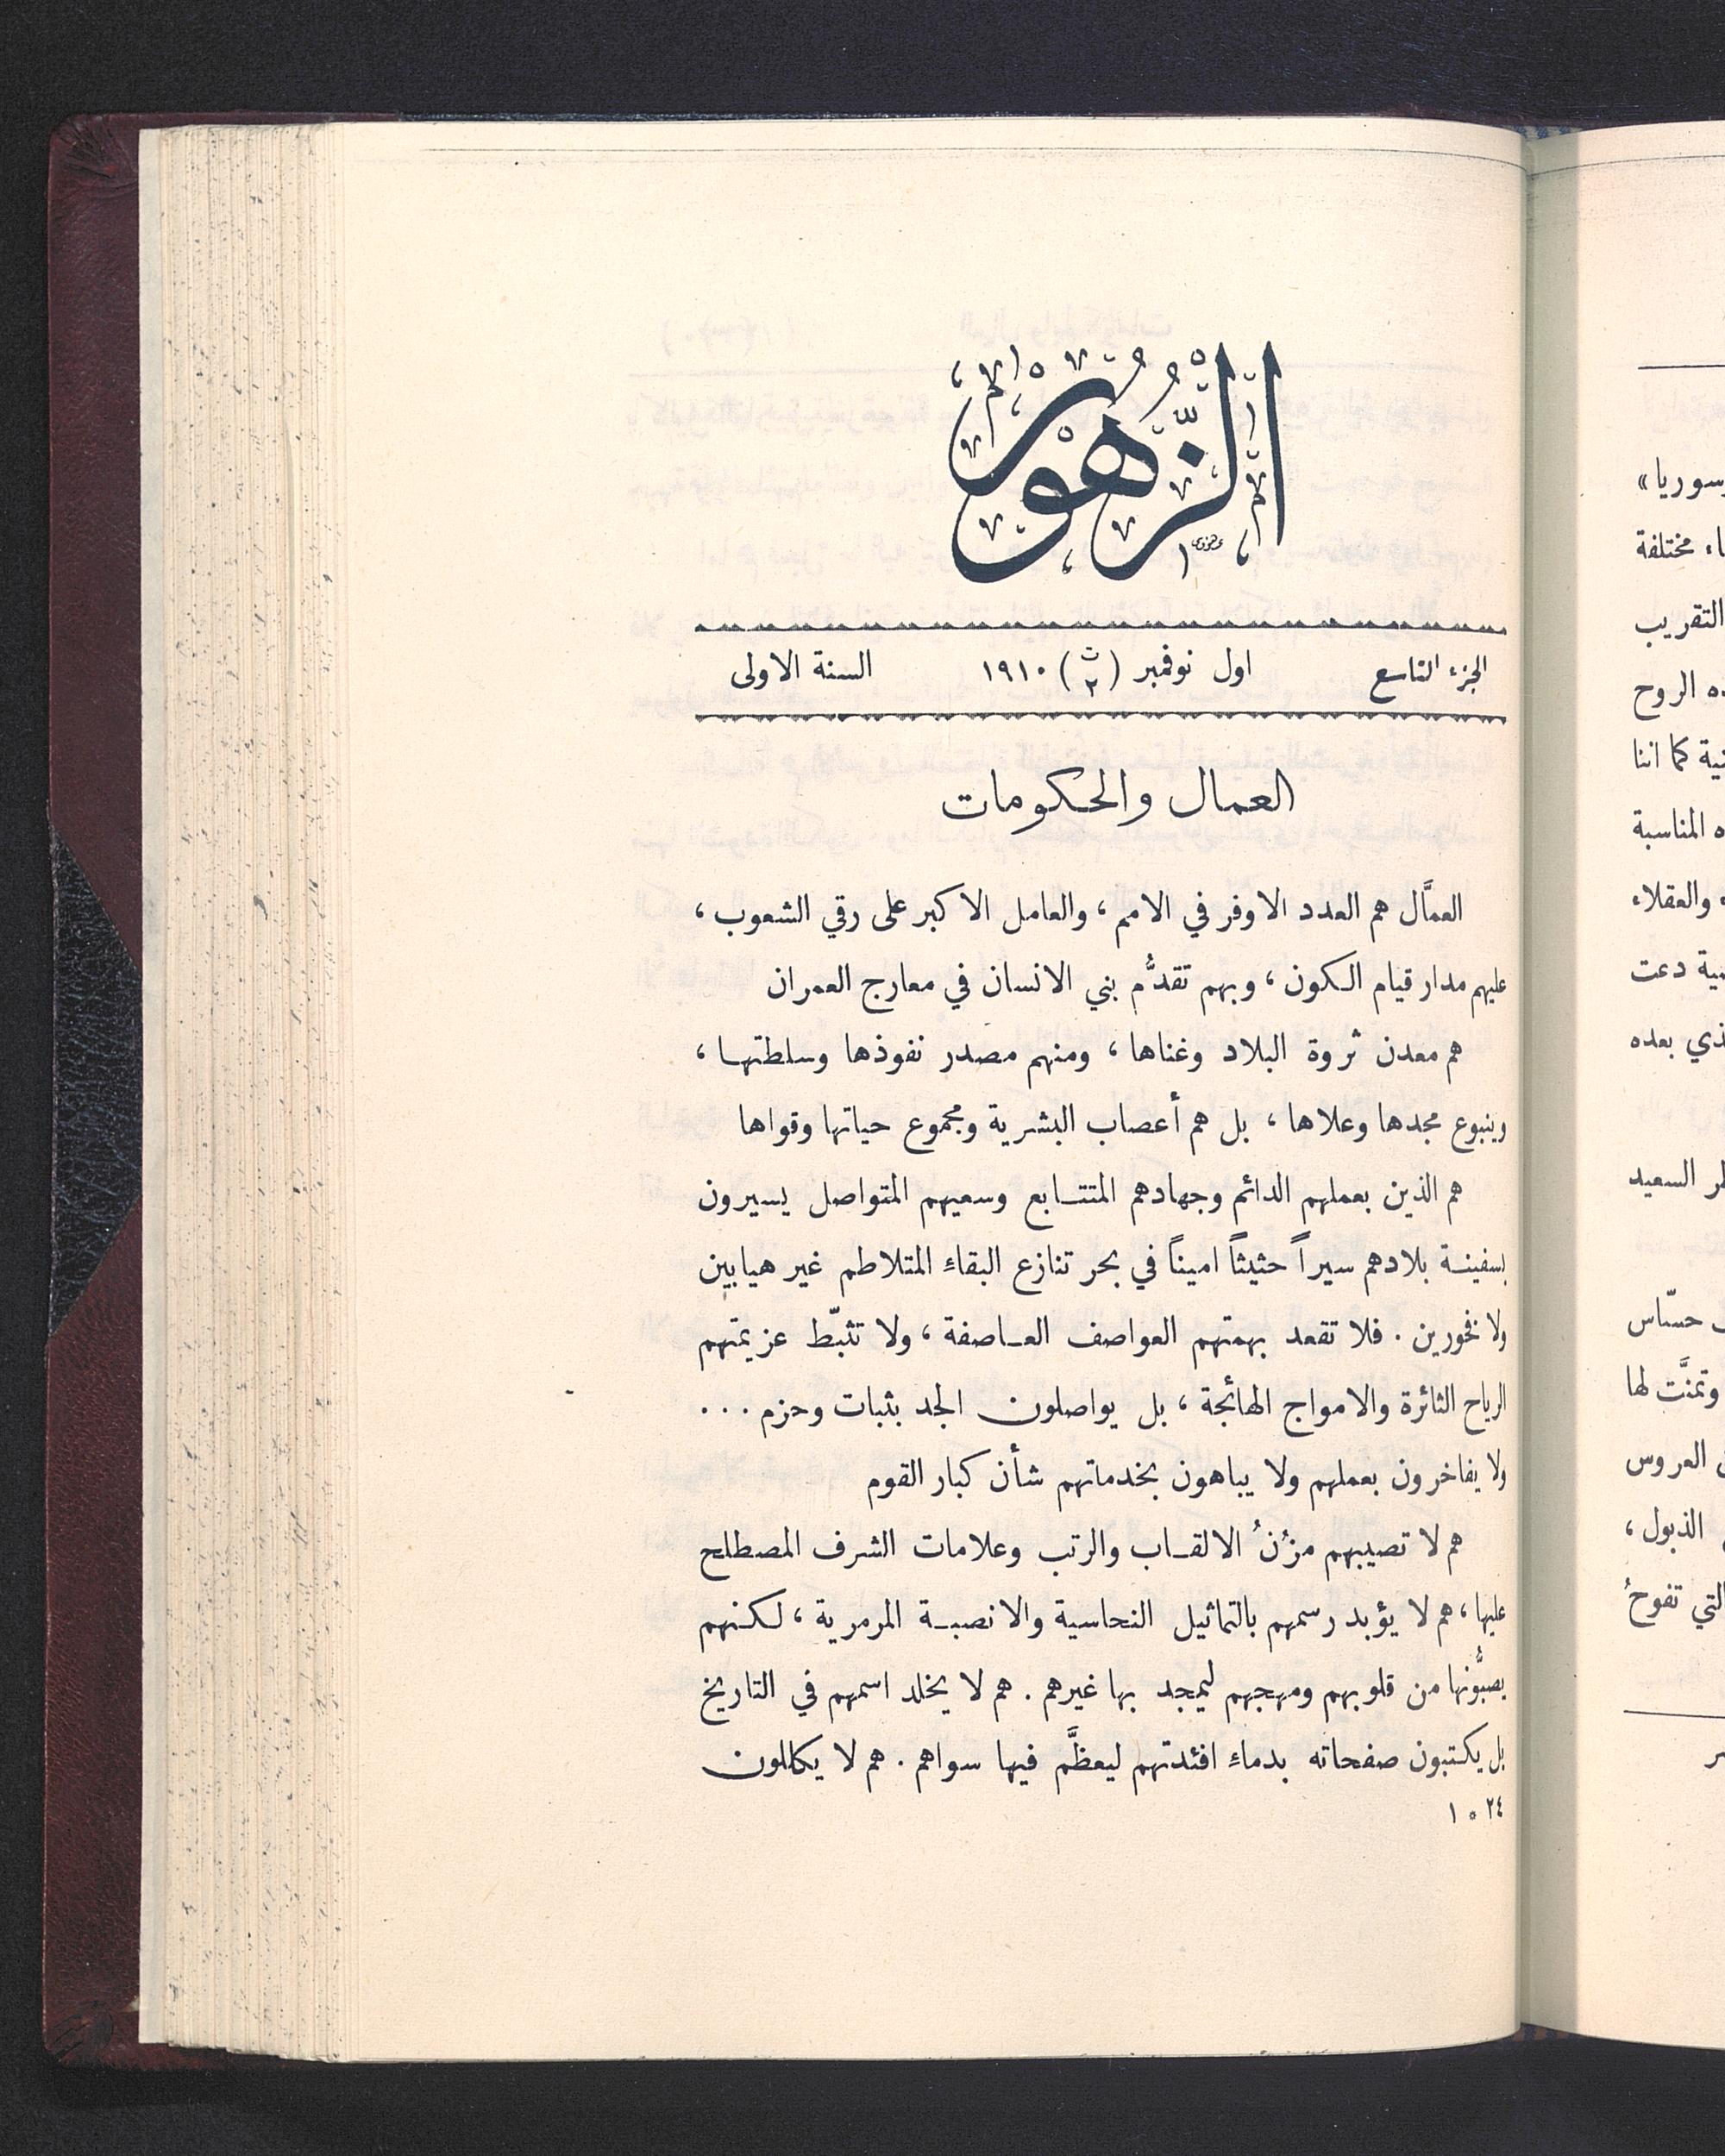 الزُّهُورْ
الجزء التاسع اول نوفمبر (ت ٢) ١٩١٠ السنة الاولى
العمال والحكومات
العمَّال هم العدد الاوفر في الامم، والعامل الاكبر على رقي الشعوب،
عليهم مدار قيام الكون، وبهم تقدُّم بني الانسان في معارج العمران
هم معدن ثروة البلاد وغناها، ومنهم مصدر نفوذها وسلطتها،
وينبوع مجدها وعلاها، بل هم أعصاب البشرية ومجموع حياتها وقواها
هم الذين بعملهم الدائم وجهادهم المتتابع وسعيهم المتواصل يسيرون
بسفينة بلادهم سيراً حثيثاً اميناً في بحر تنازع البقاء المتلاطم غير هيابين
ولا فخورين. فلا تقعد بهمتهم العواصف العاصفة، ولا تثبّط عزيمتهم
الرياح الثائرة والامواج الهائجة، بل يواصلون الجد بثبات وحزم ...
ولا يفاخرون بعملهم ولا يباهون بخدماتهم شأن كبار القوم
هم لا تصيبهم مزُنُ الالقاب والرتب وعلامات الشرف المصطلح
عليها، هم لا يؤبد رسمهم بالتماثيل النحاسية والانصبة المرمرية، لكنهم
يصبُّونها من قلوبهم ومهجهم ليمجد بها غيرهم. هم لا يخلد اسمهم في التاريخ
بل يكتبون صفحاته بدماء افئدتهم ليعظَّم فيها سواهم. هم لا يكللون
٢٤ ٥ ١
سوريا»
مختلفة
التقريب
الروح
كما اننا
المناسبة
والعقلاء
دعت
بعده
السعيد
حسّاس
وتمنَّت لها
العروس
الذبول،
التي تفوحُ